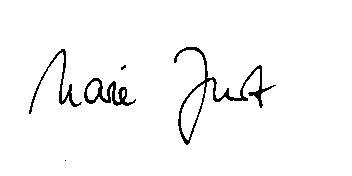 Marie Just